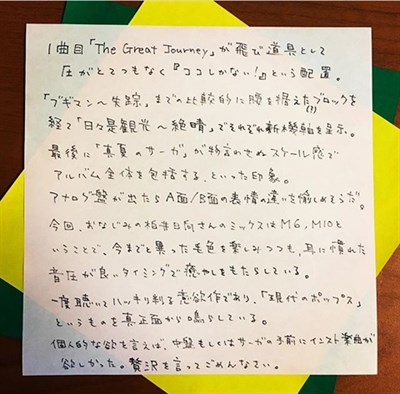 1曲目「The Great Journey」が飛び道具として
圧がとてつもなく『ココしかない!』という配置。
「ブギマン〜失踪」までの比較的に腰を据えた(?)ブロックを
経て「日々是観光〜絶晴」でそれぞれ新機軸を呈示。
最後に「真夏のサーガ」が物言わせぬスケール感で
アルバム全体を包括する、といった印象。
アナログ盤が出たらA面/B面の表情の違いを愉しめそうだ。
今回、おなじみの柏井日向さんのミックスはM6,M10と
いうことで、今までと異った毛色を楽しみつつも、耳に慣れた
音圧が良いタイミングで癒やしをもたらしている。
一度聴いてハッキリ判る意欲作であり、「現代のポップス」
というものを真正面から鳴らしている。
個人的な欲を言えば、中盤もしくはサーガの手前にインスト楽曲が
欲しかった。贅沢を言ってごめんなさい。